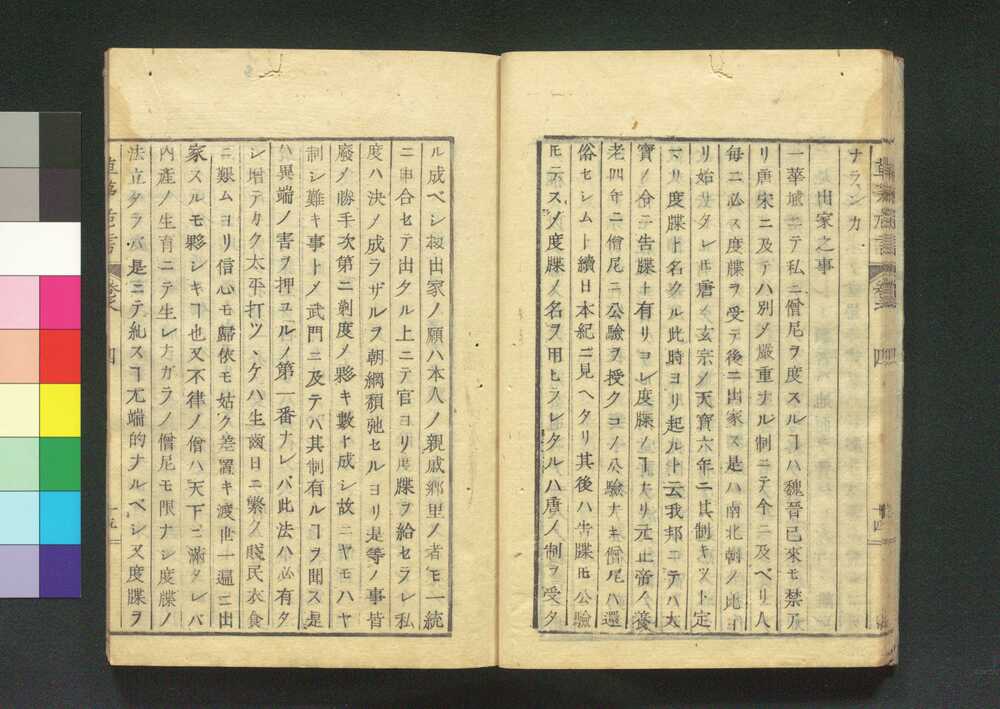 ナランカ
出家之事
一華域ニテ私ニ僧尼ヲ度スルヿハ魏晉已來モ禁ア
リ唐宋ニ及テハ別〆嚴重ナル制ニテ今ニ及ベリ人
毎ニ必ス度牒ヲ受テ後ニ出家ス是ハ南北朝ノ比ヨ
リ始リタレ𪜈唐ノ玄宗ノ天寶六年ニ其制キツト定
マリ度牒ト名クル此時ヨリ起ルト云我邦ニテハ大
寶ノ令ニ告牒ト有リコレ度牒ノヿナリ元正帝ノ養
老四年ニ僧尼ニ公驗ヲ授クコノ公驗ナキ僧尼ハ還
俗セシムト續日本紀ニ見ヘタリ其後ハ告牒𪜈公驗
𪜈ニステ度牒ノ名ヲ用ヒラレタルハ唐ノ制ヲ受タ
ル成ベシ扨出家ノ願ハ本人ノ親戚郷里ノ者モ一統
ニ申合セテ出タル上ニテ官ヨリ度牒ヲ給セラレ私
度ハ決〆成ラザルヲ朝綱頽弛セルヨリ是等ノ事皆
廢〆勝手次第ニ剃度〆夥キ數ト成シ故ニヤモハヤ
制シ難キ事ト〆武門ニ及テハ其制有ルヿヲ聞ス是
ハ異端ノ害ヲ押ユルノ第一番ナレバ此法ハ必有タ
シ増テカク太平打ツヽケハ生齒日ニ繁ク賤民衣食
ニ艱ムヨリ信心モ歸依モ姑ク差置キ渡世一遍ニ出
家スルモ夥シキヿ也又不律ノ僧ハ天下ニ滿タレバ
内產ノ生育ニテ生レナガラノ僧尼モ限ナシ度牒ノ
法立タラバ是ニテ糺スヿ尤端的ナルベシ又度牒ヲ